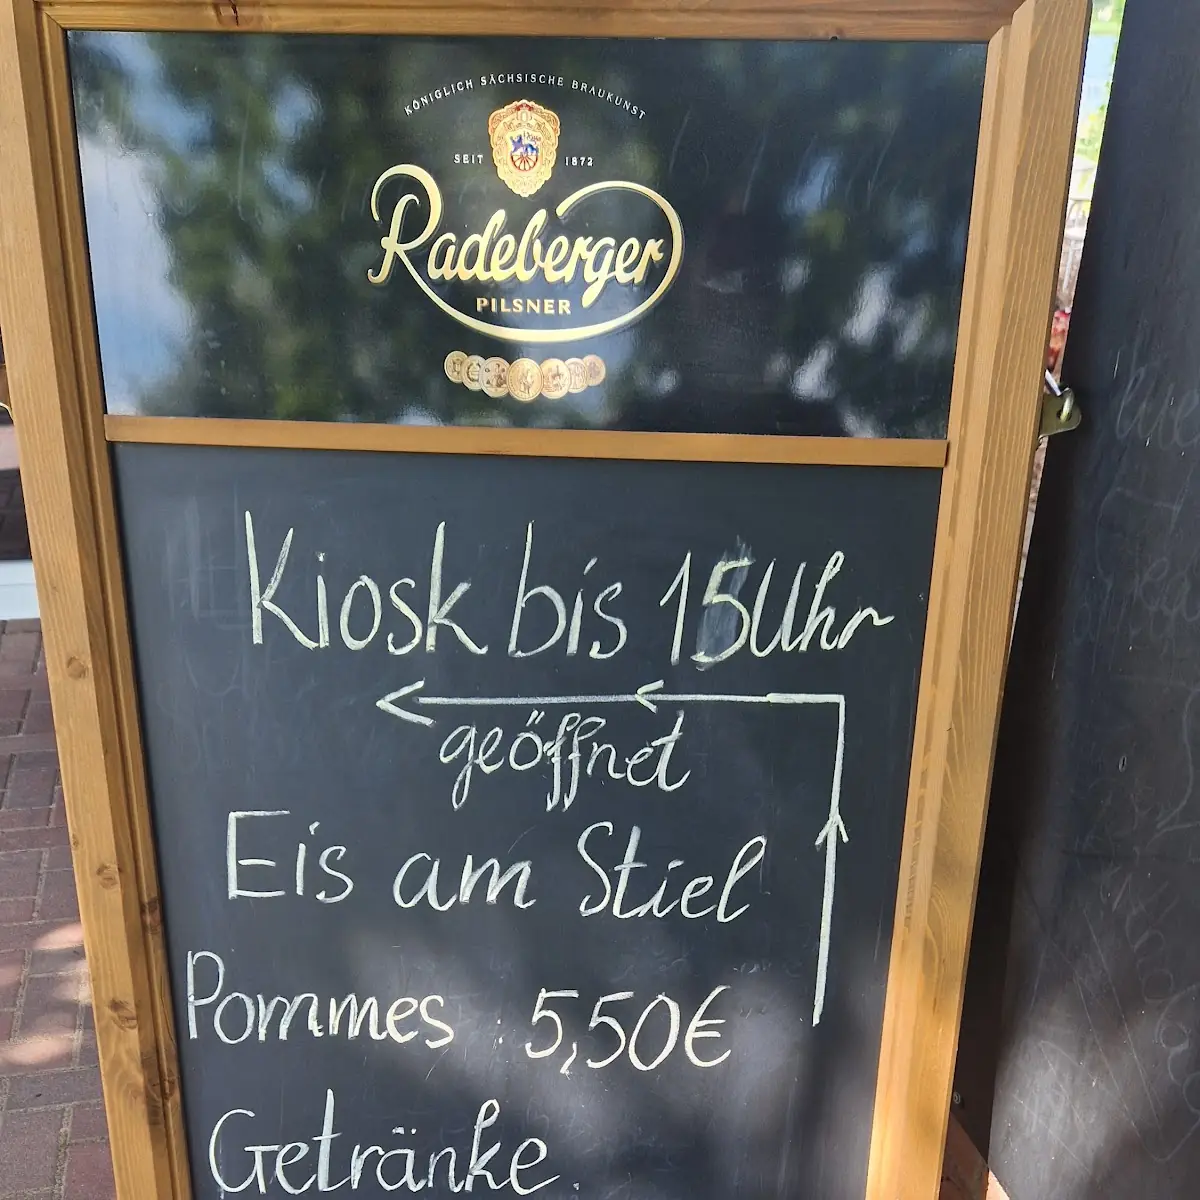 KÖNIGLICH SÄCHSISCHE BRAUKUNST
SEIT 1872
Radeberger
PILSNER
Kiosk bis 15 Uhr
geöffnet
Eis am Stiel
Pommes 5,50€
Getränke